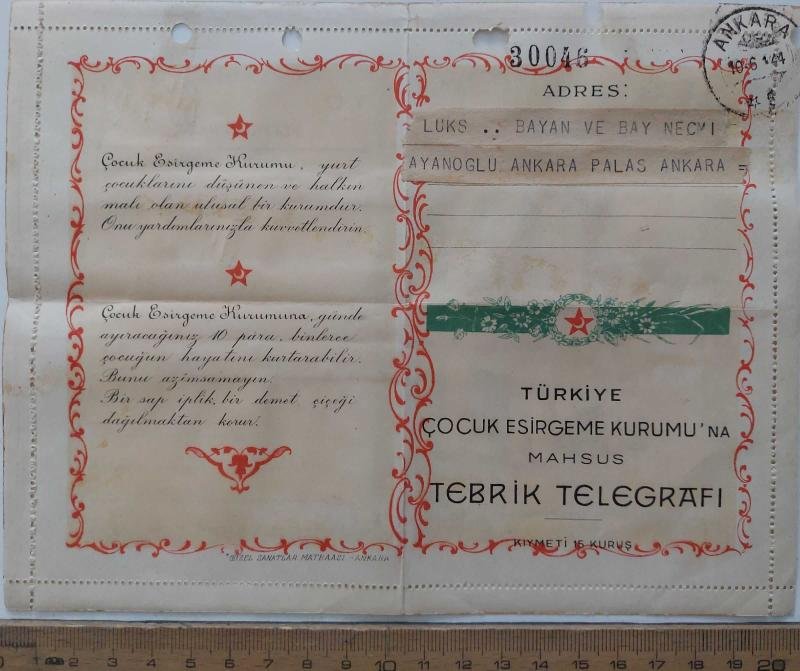 Çocuk Esirgeme Kurumu, yurt
çocuklarını düşünen ve halkın
malı olan ulusal bir kurumdur.
Onu yardımlarınızla kuvvetlendirin.
Çocuk Esirgeme Kurumuna, günde
ayıracağınız 10 para, binlerce
çocuğun hayatını kurtarabilir.
Bunu azımsamayın.
Bir sap iplik, bir demet çiçeği
dağılmaktan korur.
GÜZEL SANATLAR MATBAASI - ANKARA
30046
ANKARA
ADRES:
LUKS .. BAYAN VE BAY NECMI
AYANOGLU ANKARA PALAS ANKARA =
TÜRKİYE
ÇOCUK ESİRGEME KURUMU'NA
MAHSUS
TEBRİK TELEGRAFI
KIYMETİ 15 KURUŞ
0 1 2 3 4 5 6 7 8 9 10 11 12 13 14 15 16 17 18 19 20